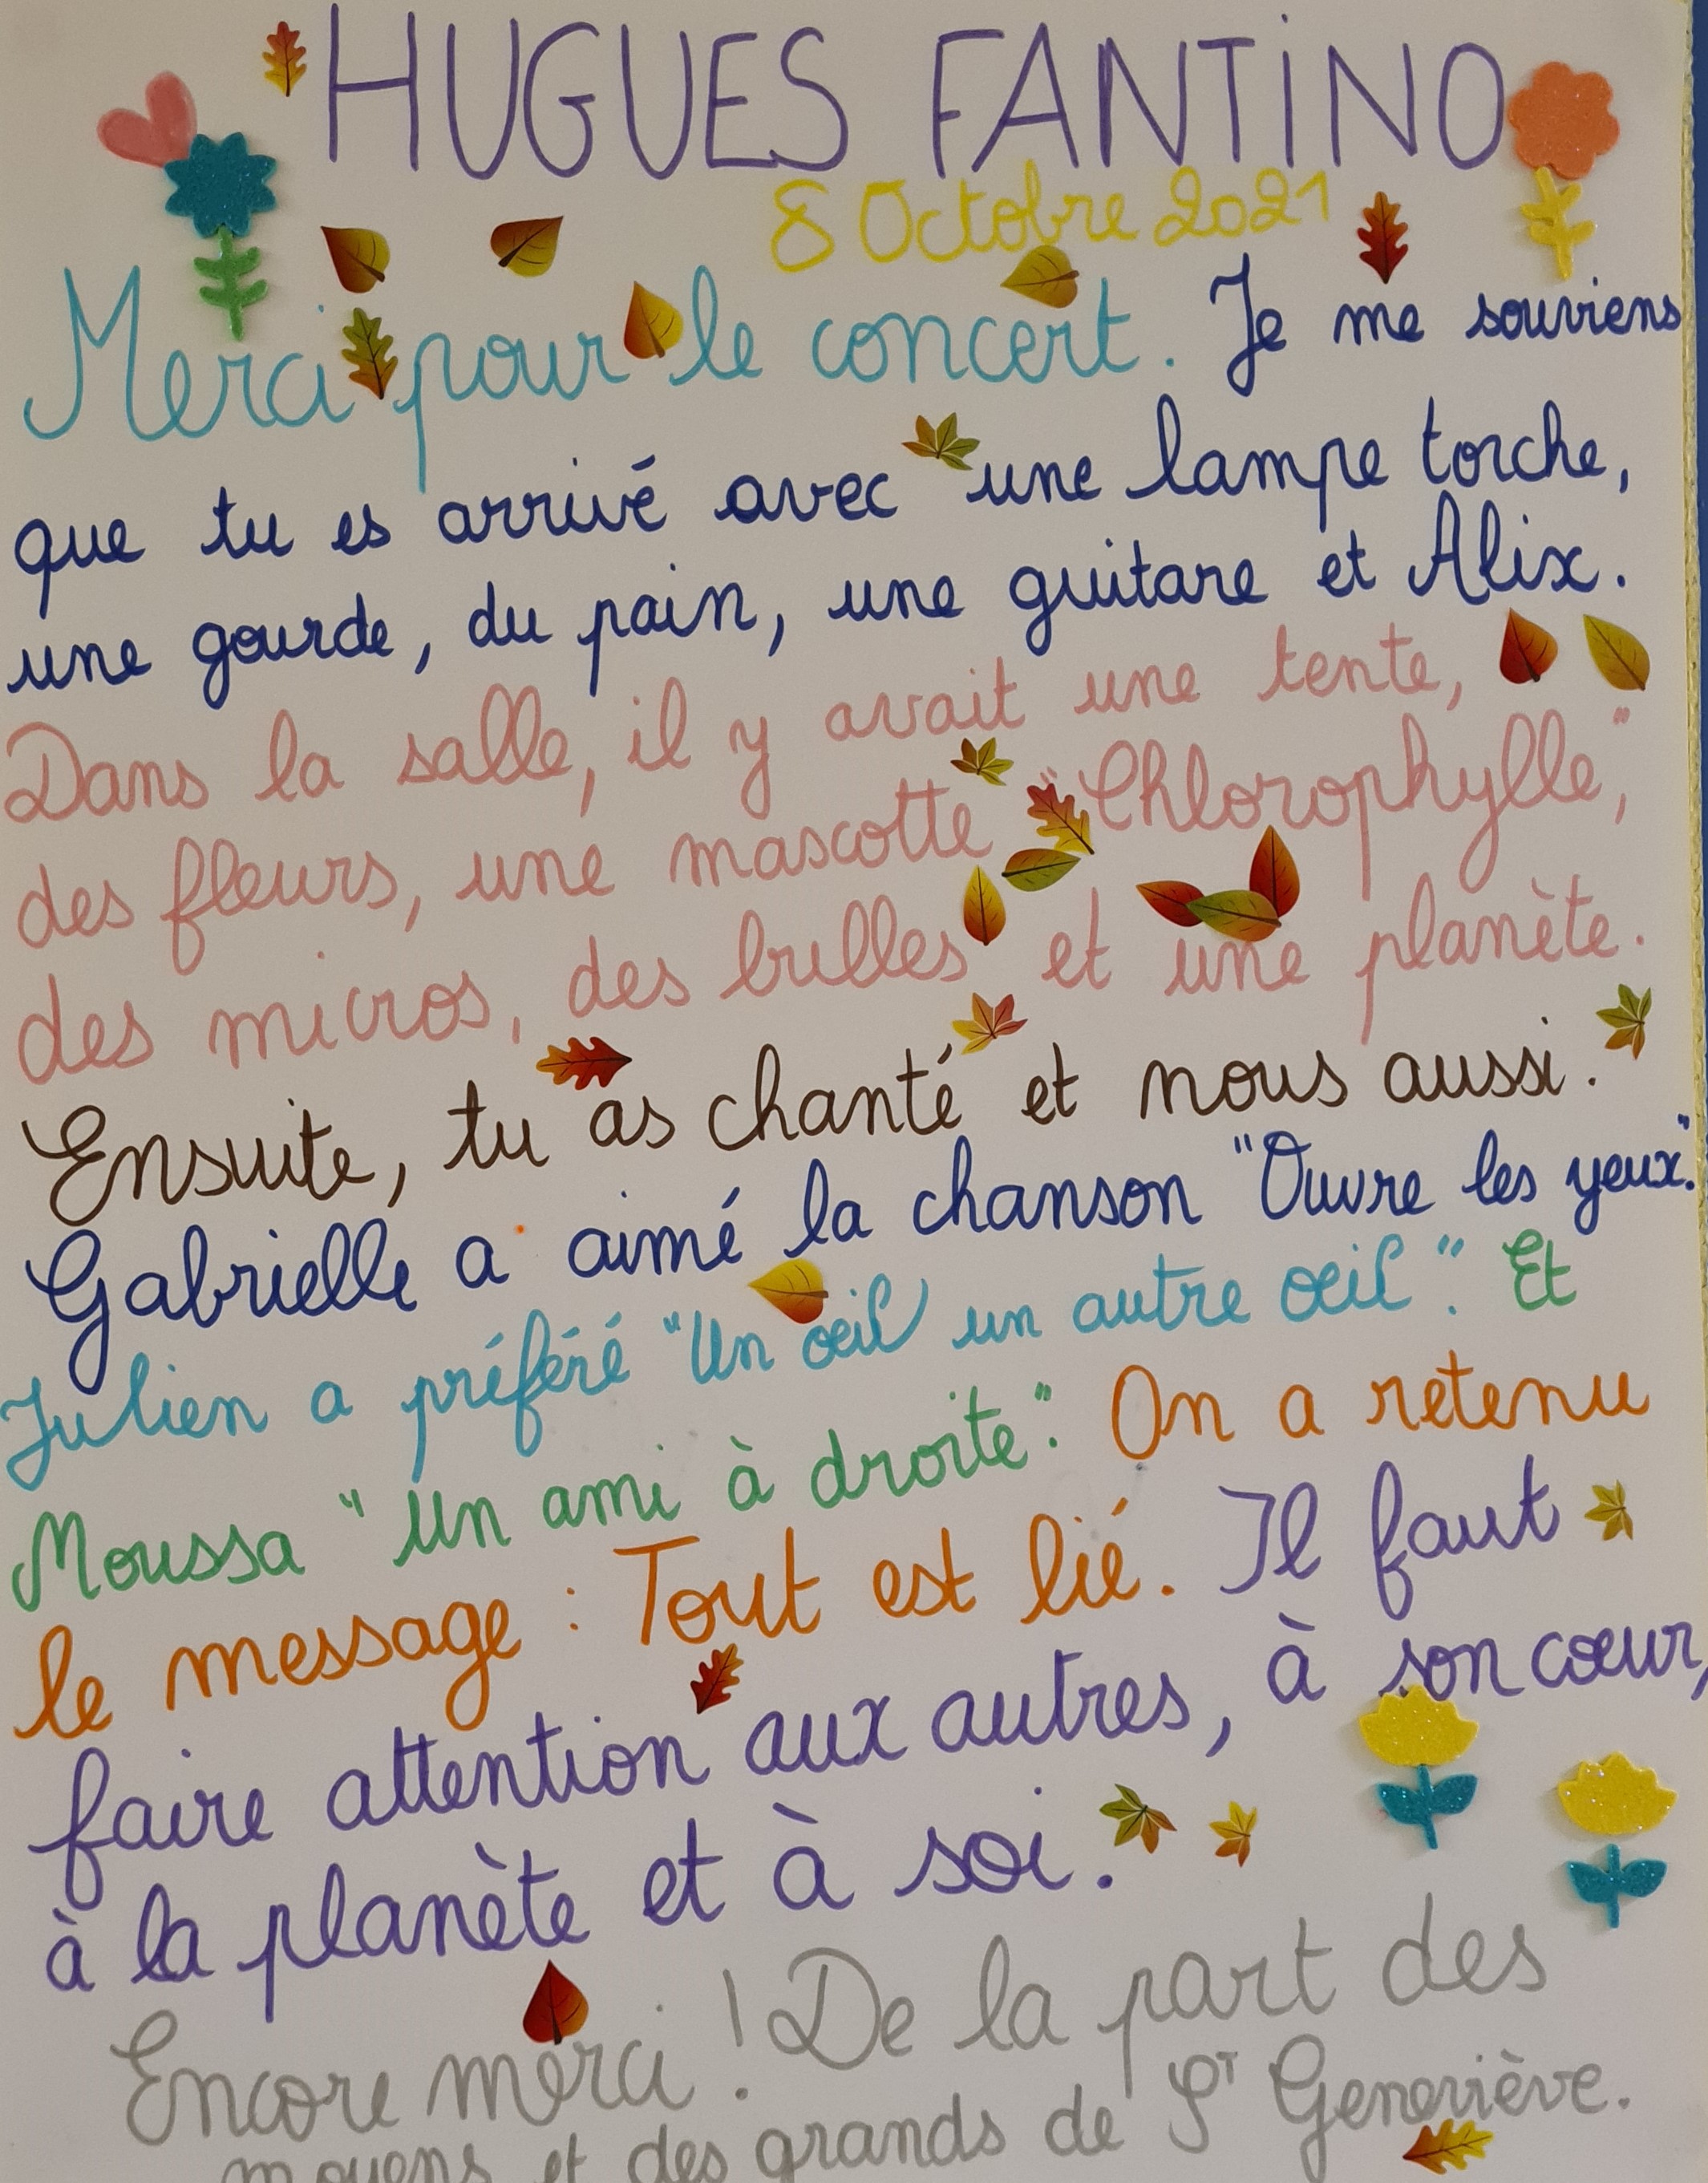 HUGUES FANTINO
8 Octobre 2021
Merci pour le concert. Je me souviens
que tu es arrivé avec une lampe torche,
une gourde, du pain, une guitare et Alix.
Dans la salle, il y avait une tente,
des fleurs, une mascotte "Chlorophylle",
des micros, des bulles et une planète.
Ensuite, tu as chanté et nous aussi.
Gabrielle a aimé la chanson "Ouvre les yeux".
Julien a préféré "Un œil un autre œil". Et
Moussa "Un ami à droite". On a retenu
le message : Tout est lié. Il faut
faire attention aux autres, à son cœur,
à la planète et à soi.
Encore merci ! De la part des
moyens et des grands de ST Geneviève.